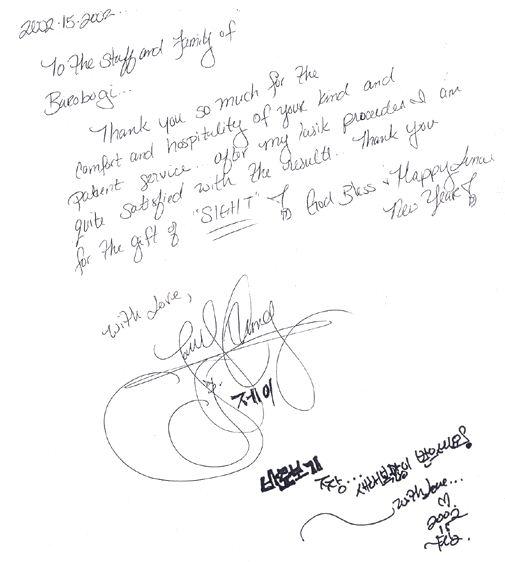 2002.15.2002...
To The Staff and Family of
Barobogi...
Thank you so much for the
comfort and hospitality of your kind and
patient service... after my lasik procedure I am
quite satisfied with the results... Thank you
for the gift of "SIGHT" God Bless & Happy
New Year
with Love,
제이
바로보기 짱... 새해복많이 받으세요!
with love...
2002
15